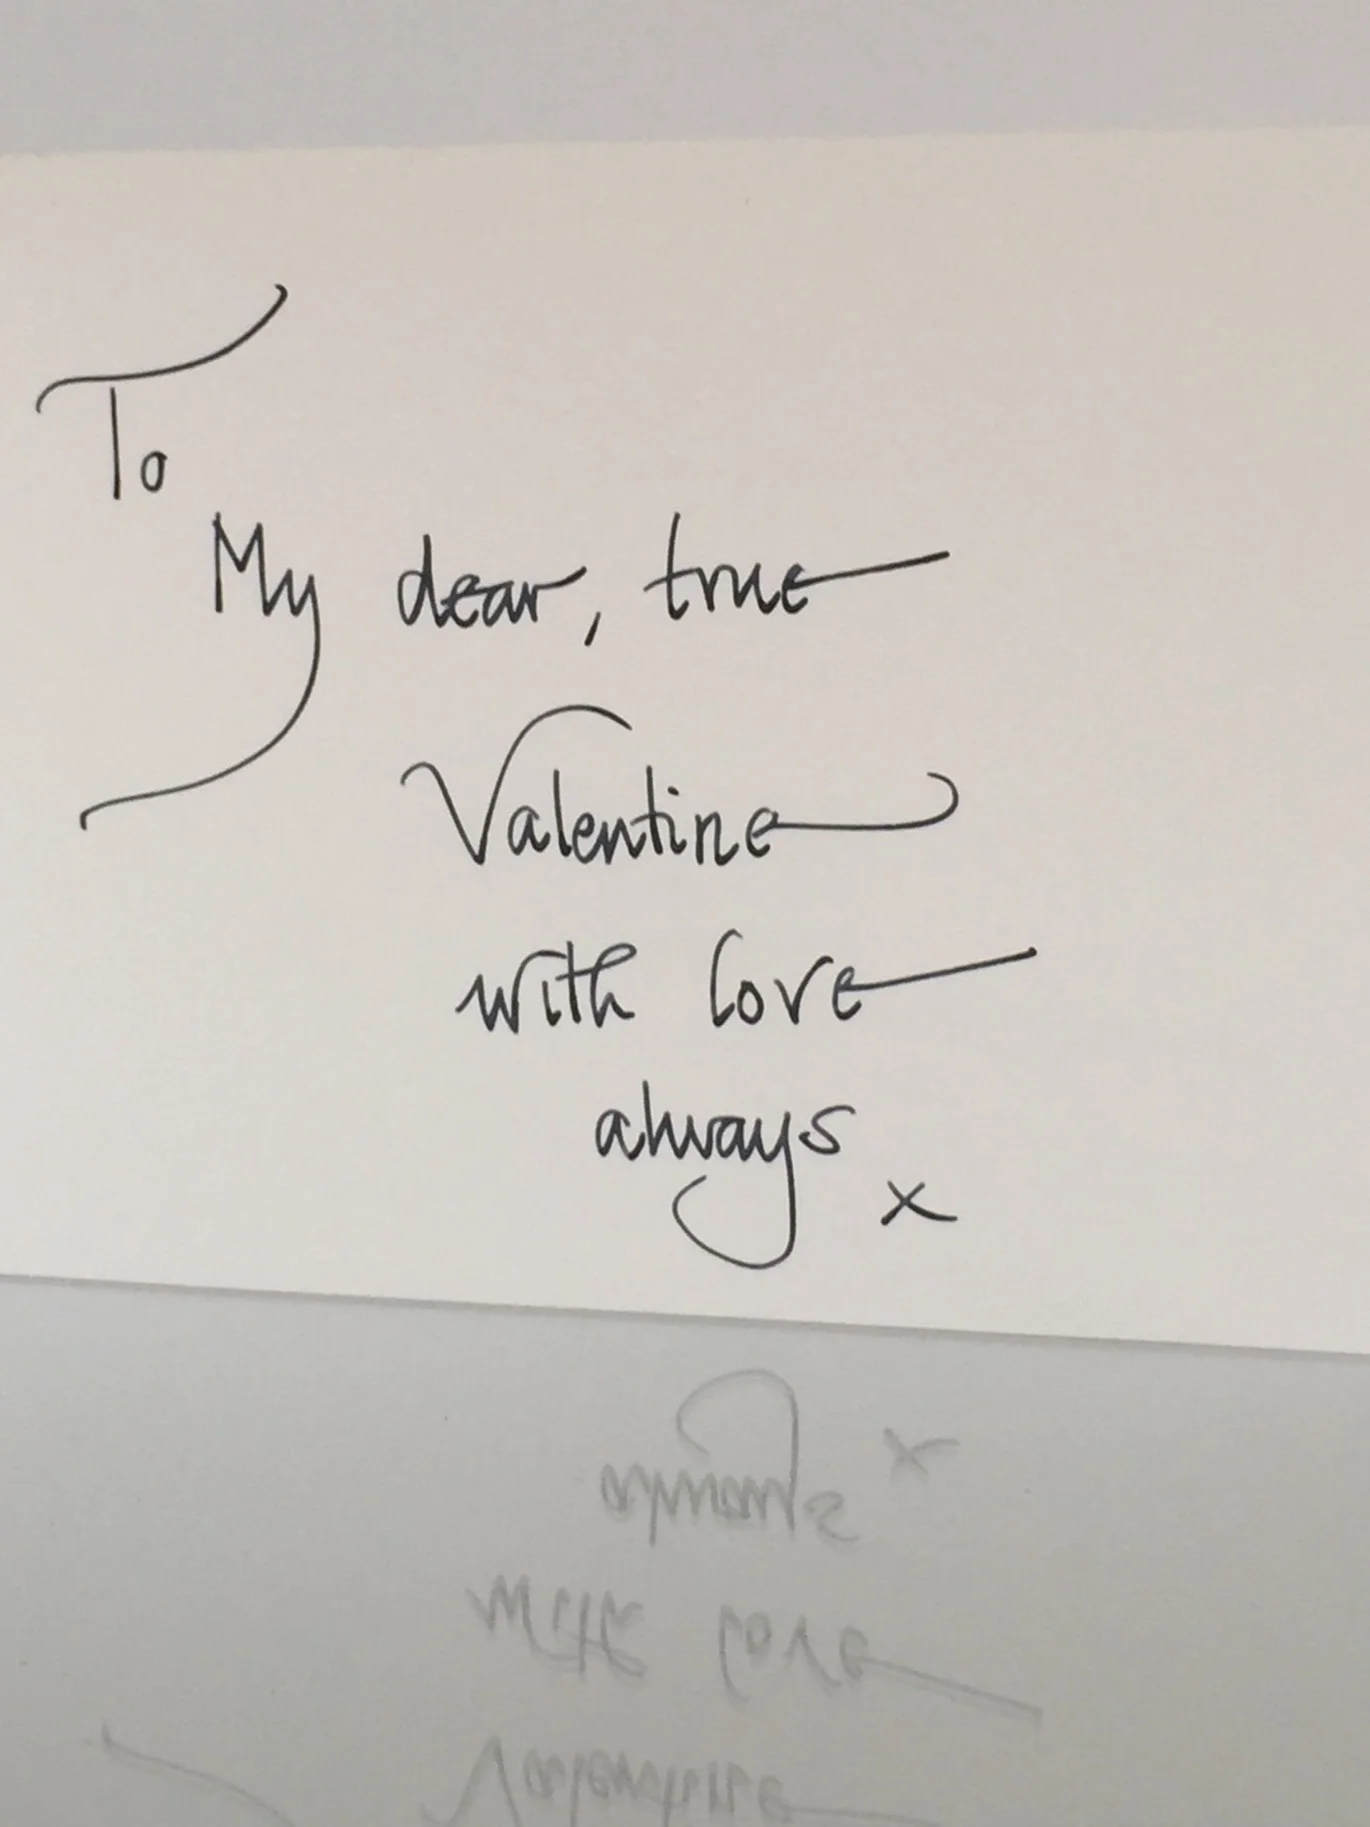 To
My dear, true
Valentine
with love
always
x